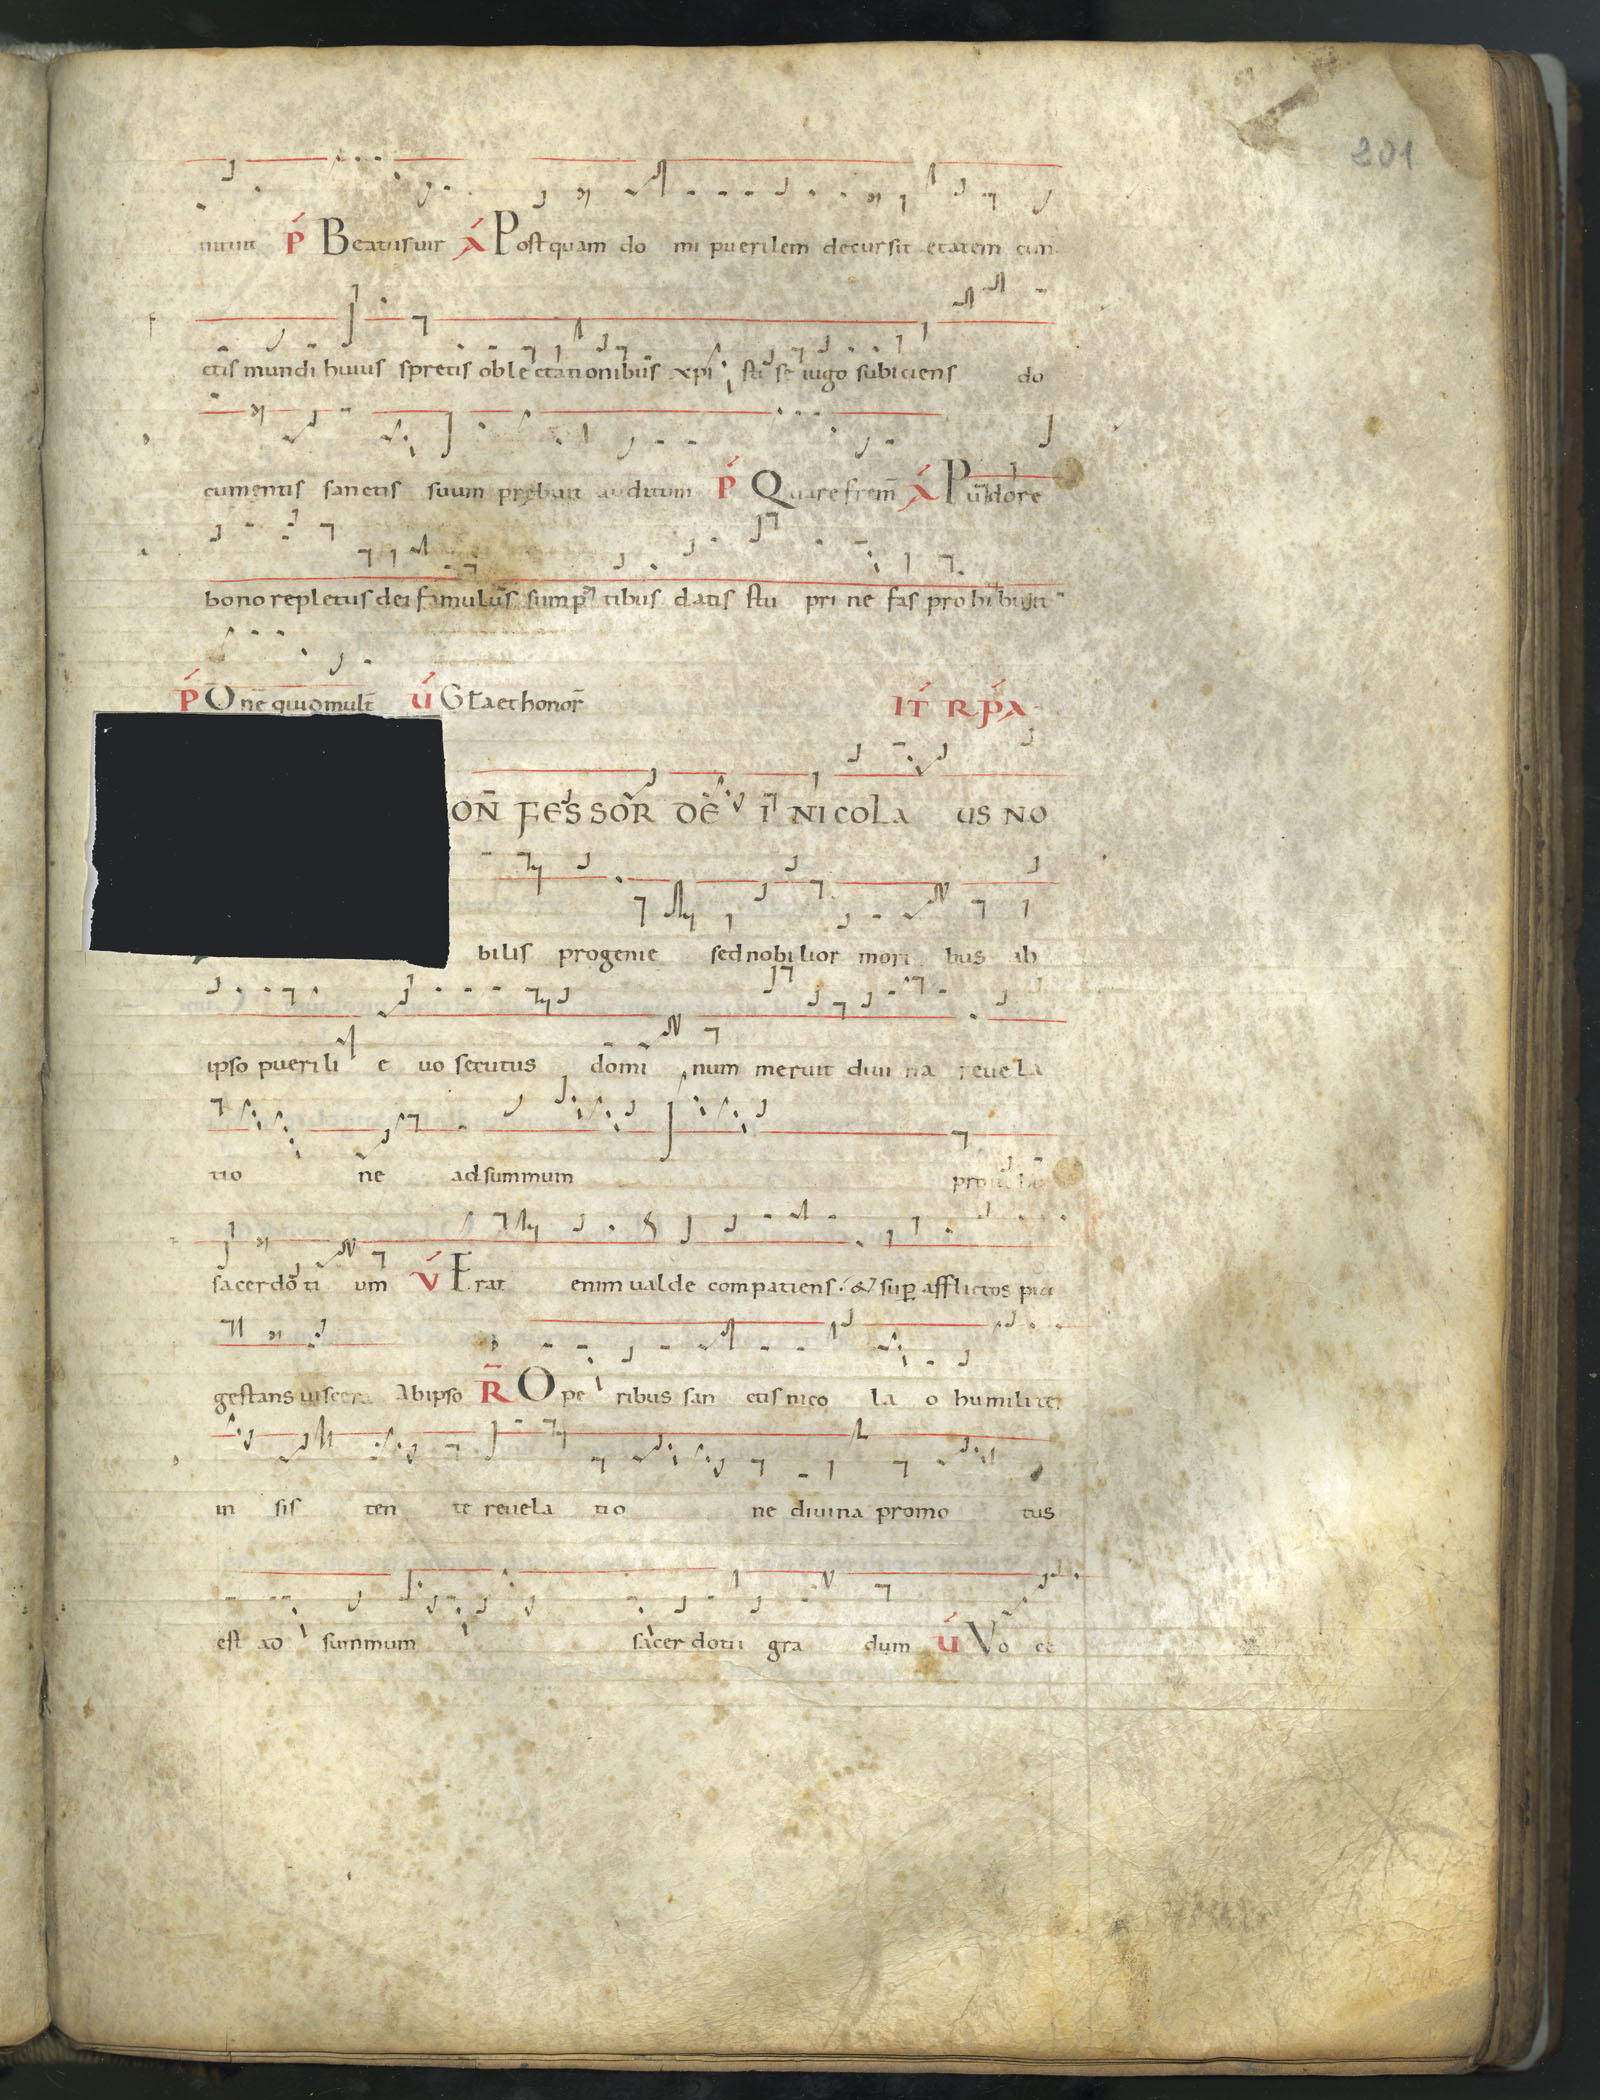 201
nituit P Beatus uir A Postquam do mi puerilem decursit etatem cun
ctis mundi huius spretis oblectationibus xpi sti se iugo subiciens do
cumentis sanctis suum prębuit auditum P Quare frem̄ A Pudore
bono repletus dei famulus sumptibus datis stu pri ne fas prohibuit
P Dn̄e quid mult̄ V Gl̄a et honor̄ IT RPA
ON FESSOR DE I NICOLA US NO
bilis progenie sed nobilior mori bus ab
ipso puerili e uo secutus domi num meruit diui na reuela
tio ne ad summum
sacerdoti um V Erat enim ualde compatiens. & sup̄ afflictos pia
gestans uiscera Ab ipso R Ope ribus san ctis nico la o humiliter
in sis ten te reuela tio ne diuina promo tus
est ad summum sacer dotii gra dum V Vo ce